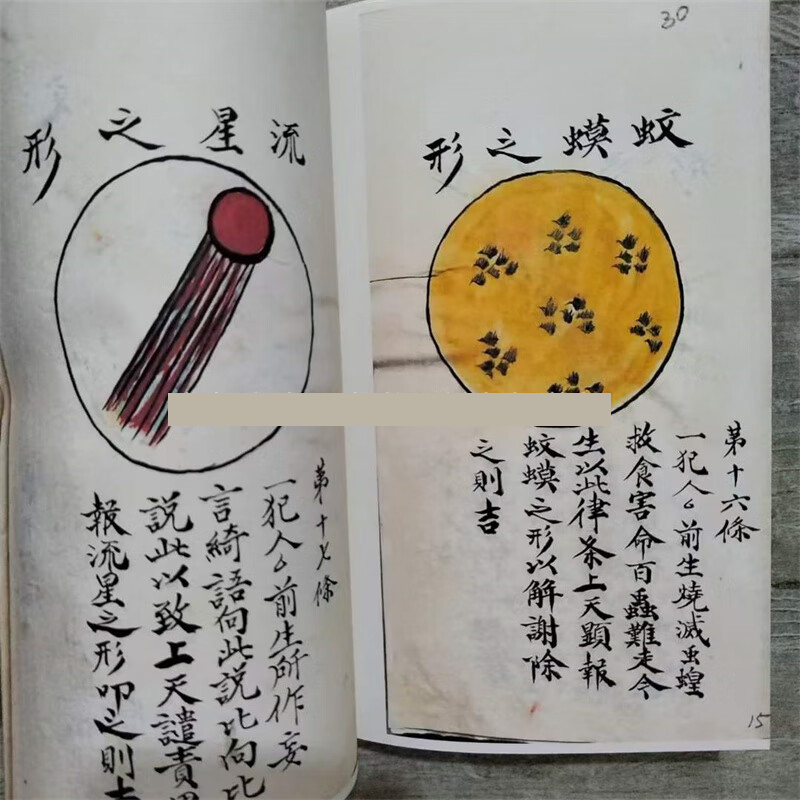 30
蚊蟆之形
第十六條
一犯人厶前生燒滅虫蝗
救食害命百蟲難走今
生以此律条上天顯報
蚊蟆之形以解謝除
之則吉
15
流星之形
第十七條
一犯人厶前生所作妄
言綺語向此説比向比
説此以致上天譴責
報流星之形叩之則吉